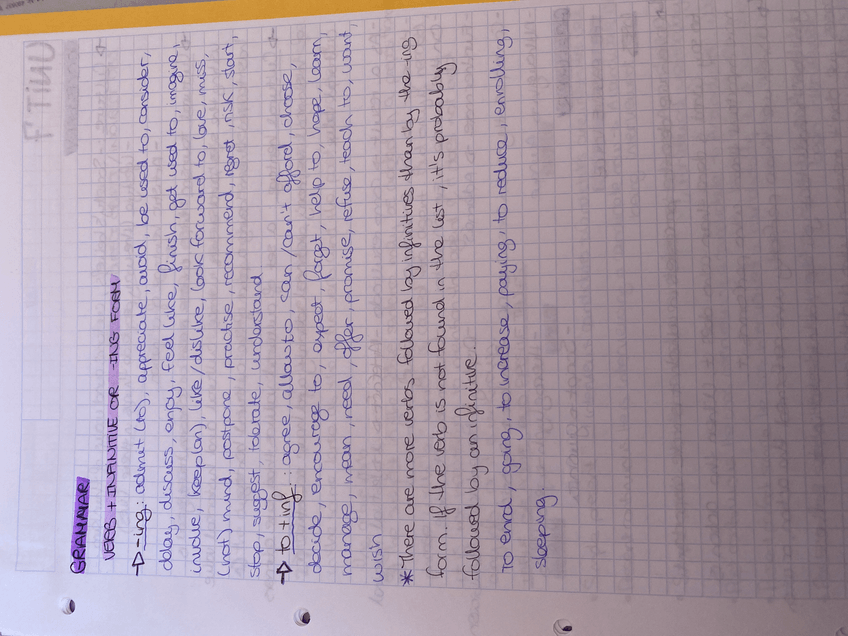 GRAMMAR
VERB + INFINITIVE OR -ING FORM
→ -ing: admit (to), appreciate, avoid, be used to, consider,
delay, discuss, enjoy, feel like, finish, get used to, imagine,
involve, keep(on), like/dislike, look forward to, love, miss,
(not) mind, postpone, practise, recommend, regret, risk, start,
stop, suggest, tolerate, understand
→ to + inf.: agree, allow to, can/can't afford, choose,
decide, encourage to, expect, forget, help to, hope, learn,
manage, mean, need, offer, promise, refuse, teach to, want,
wish
* There are more verbs followed by infinitives than by the -ing
form. If the verb is not found in the list, it's probably
followed by an infinitive.
To end, going, to increase, paying, to reduce, enrolling,
sleeping.